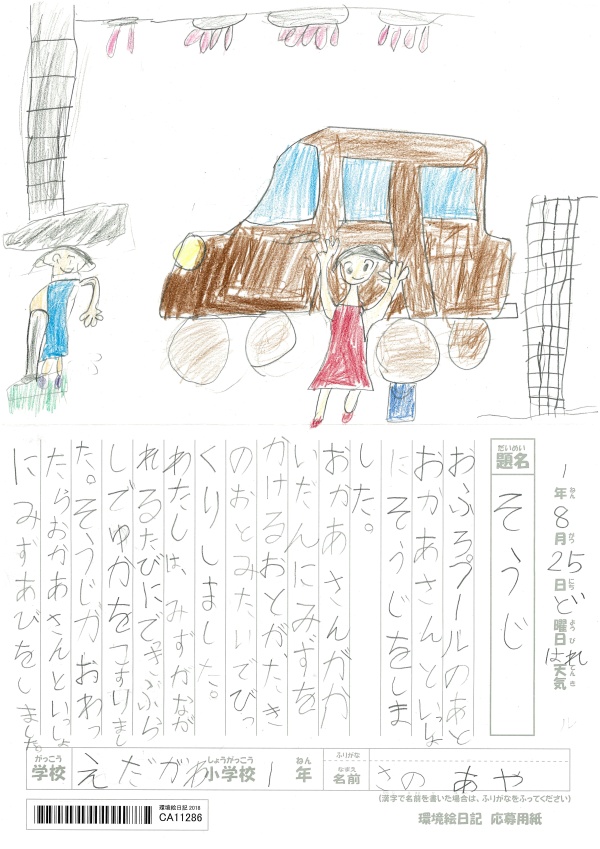 1年ねん8月がつ25日にちど曜日ようびはれ天気てんき
題名だいめい そうじ
おふろプールのあと
おかあさんといっしょ
にそうじをしま
した。
おかあさんがか
いだんにみずを
かけるおとがたき
のおとみたいでびっ
くりしました。
わたしは、みずがなが
れるたびにでっきぶら
しでゆかをこすりまし
た。そうじがおわっ
たらおかあさんといっしょ
にみずあびをしました。
学校がっこう えだがわ小学校しょうがっこう 1年ねん 名前なまえ ふりがな さの あや
(漢字で名前を書いた場合は、ふりがなをふってください)
環境絵日記 2018
CA11286
環境絵日記 応募用紙